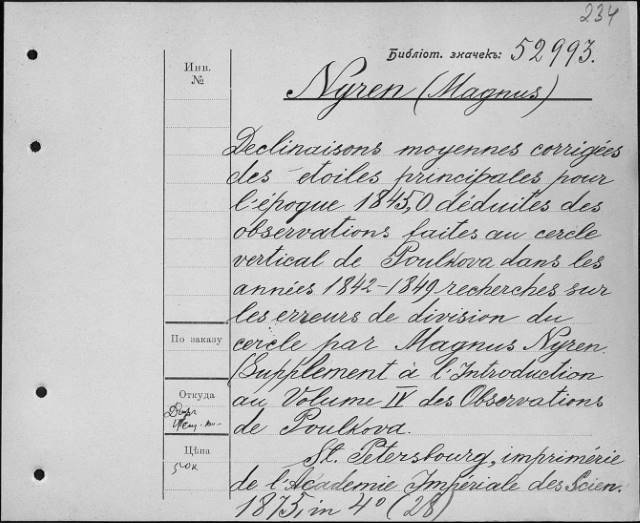 234
Библіот. значекъ: 52993.
Инв.
№
Nyren (Magnus)
Declinaisons moyennes corrigées
des étoiles principales pour
l'époque 1845,0 déduites des
observations faites au cercle
vertical de Poulkova dans les
années 1842-1849 recherches sur
les erreurs de division du
По заказу
cercle par Magnus Nyren.
(Supplement à l'Introduction
Откуда
au Volume IV des Observations
de Poulkova.
Цѣна
St. Petersbourg, imprimérie
de l'Académie Impériale des Scien.
1875, in 4º (28)